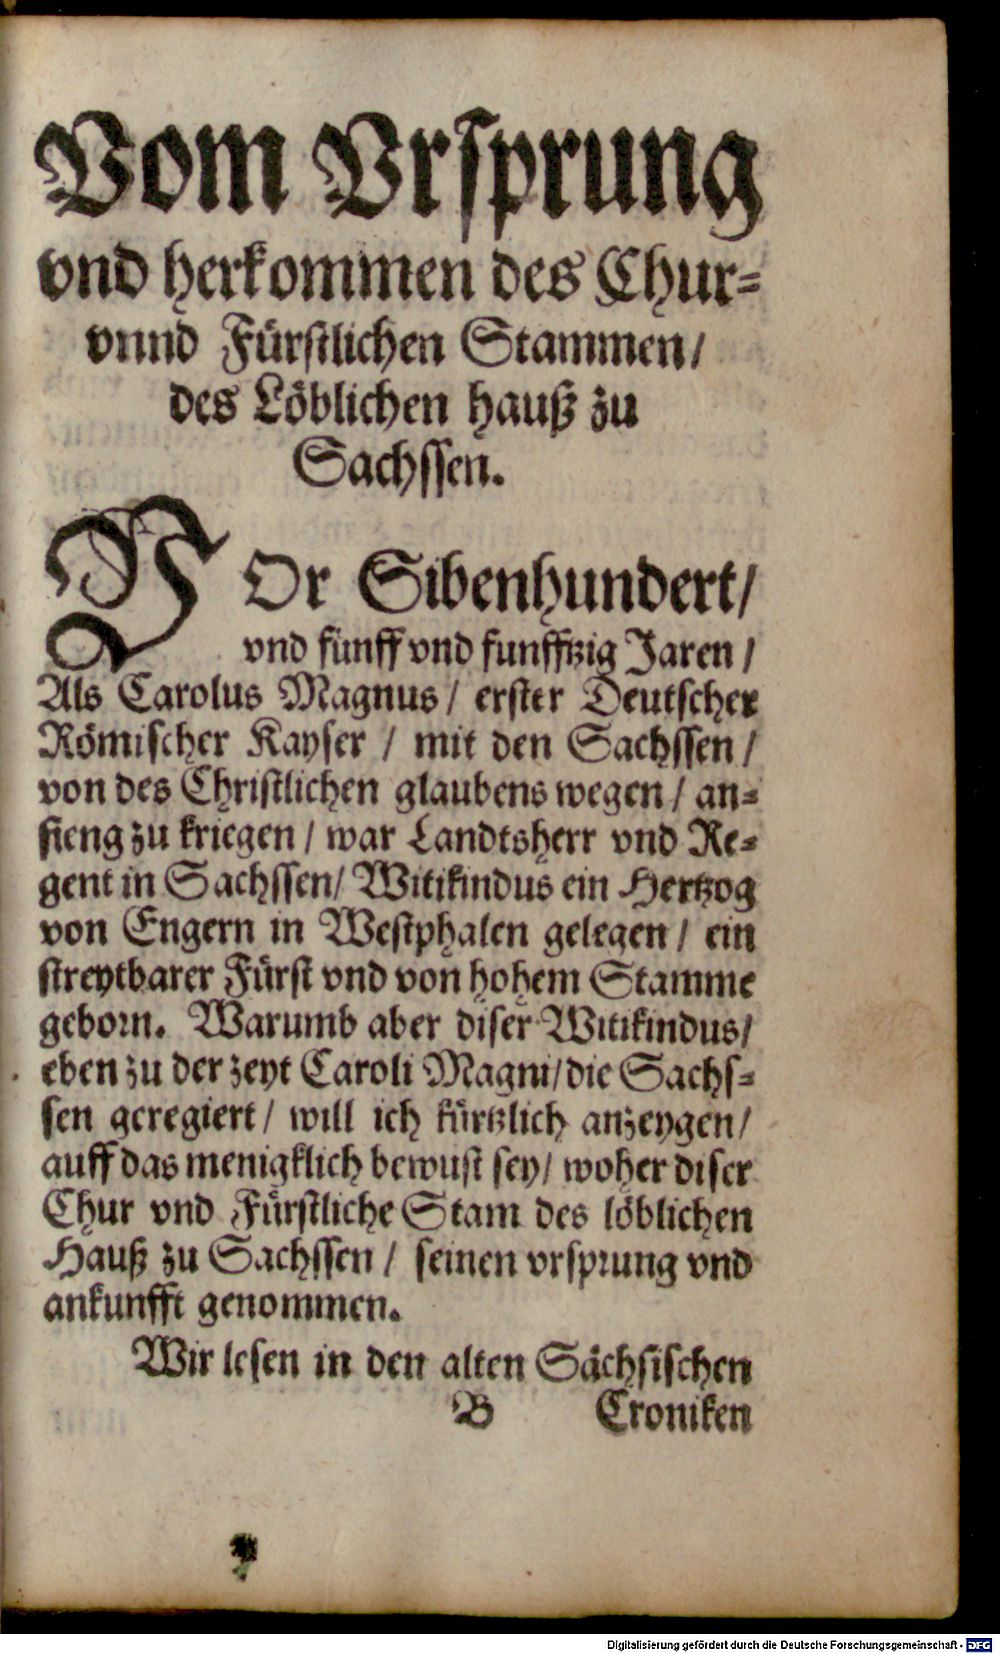 Vom Vrſprung
vnd herkommen des Chur-
vnnd Fürſtlichen Stammen/
des Löblichen hauß zu
Sachſſen.
VOr Sibenhundert/
vnd fünff vnd funfftzig Jaren /
Als Carolus Magnus / erſter Deutſcher
Römiſcher Kayſer / mit den Sachſſen /
von des Chriſtlichen glaubens wegen / an-
fieng zu kriegen / war Landtsherr vnd Re-
gent in Sachſſen/ Witikindus ein Hertzog
von Engern in Weſtphalen gelegen / ein
ſtreytbarer Fürſt vnd von hohem Stamme
geborn. Warumb aber diſer Witikindus/
eben zu der zeyt Caroli Magni/die Sachſ-
ſen geregiert/ will ich kürtzlich anzeygen/
auff das menigklich bewuſt ſey/ woher diſer
Chur vnd Fürſtliche Stam des löblichen
Hauß zu Sachſſen / ſeinen vrſprung vnd
ankunfft genommen.
Wir leſen in den alten Sächſiſchen
B Croniken
Digitalisierung gefördert durch die Deutsche Forschungsgemeinschaft - DFG